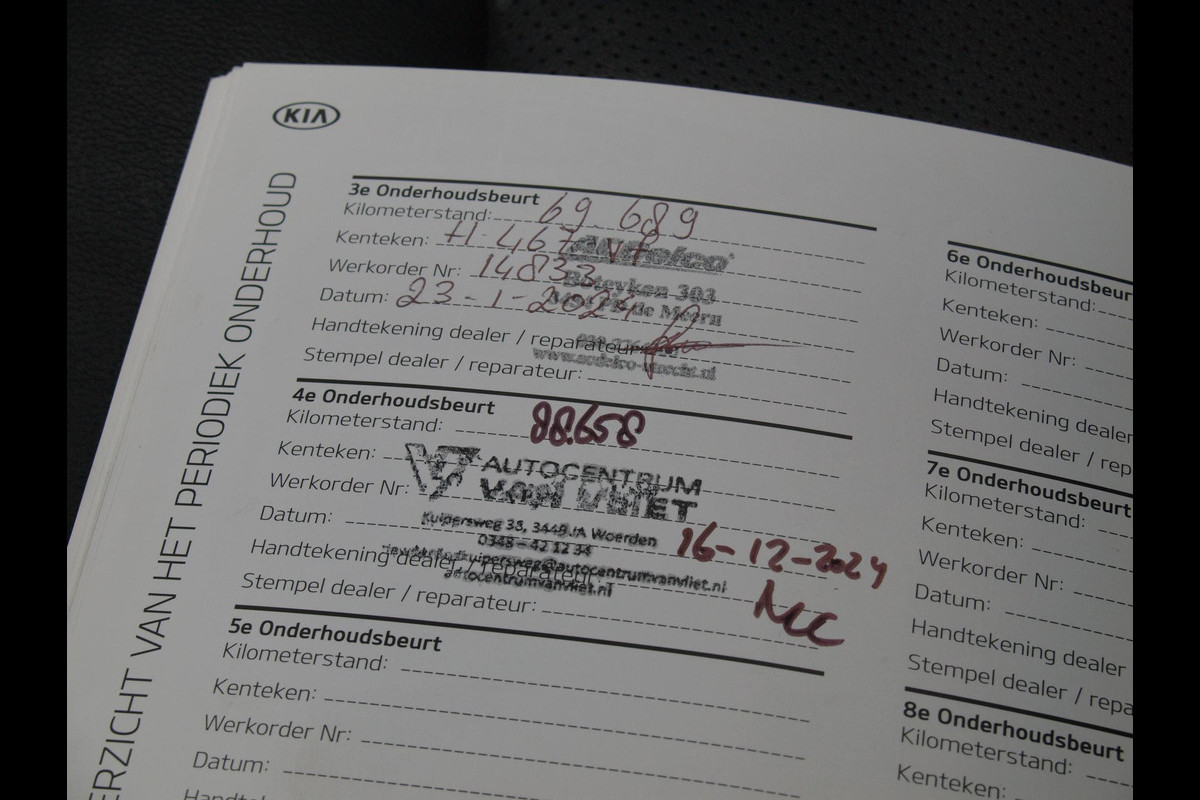 KIA
ERZICHT VAN HET PERIODIEK ONDERHOUD
3e Onderhoudsbeurt
Kilometerstand: 69 689
Kenteken: H 467
Werkorder Nr: 14833
Datum: 23-1-2024
Handtekening dealer / reparateur:
Stempel dealer / reparateur:
303
de Meern
4e Onderhoudsbeurt
Kilometerstand: 88.658
Kenteken:
Werkorder Nr:
Datum: 16-12-2024
Handtekening dealer / reparateur:
Stempel dealer / reparateur:
AUTOCENTRUM
VAN VLIET
Kuipersweg 35, 3449 JA Woerden
0348 - 42 12 34
@autocentrumvanvliet.nl
autocentrumvanvliet.nl
5e Onderhoudsbeurt
Kilometerstand:
Kenteken:
Werkorder Nr:
Datum:
6e Onderhoudsbeur
Kilometerstand:
Kenteken:
Werkorder Nr:
Datum:
Handtekening dealer
Stempel dealer / rep
7e Onderhoudsbeurt
Kilometerstand:
Kenteken:
Werkorder Nr:
Datum:
Handtekening dealer
Stempel dealer / repa
8e Onderhoudsbeurt
Kilometerstand:
Kenteken: